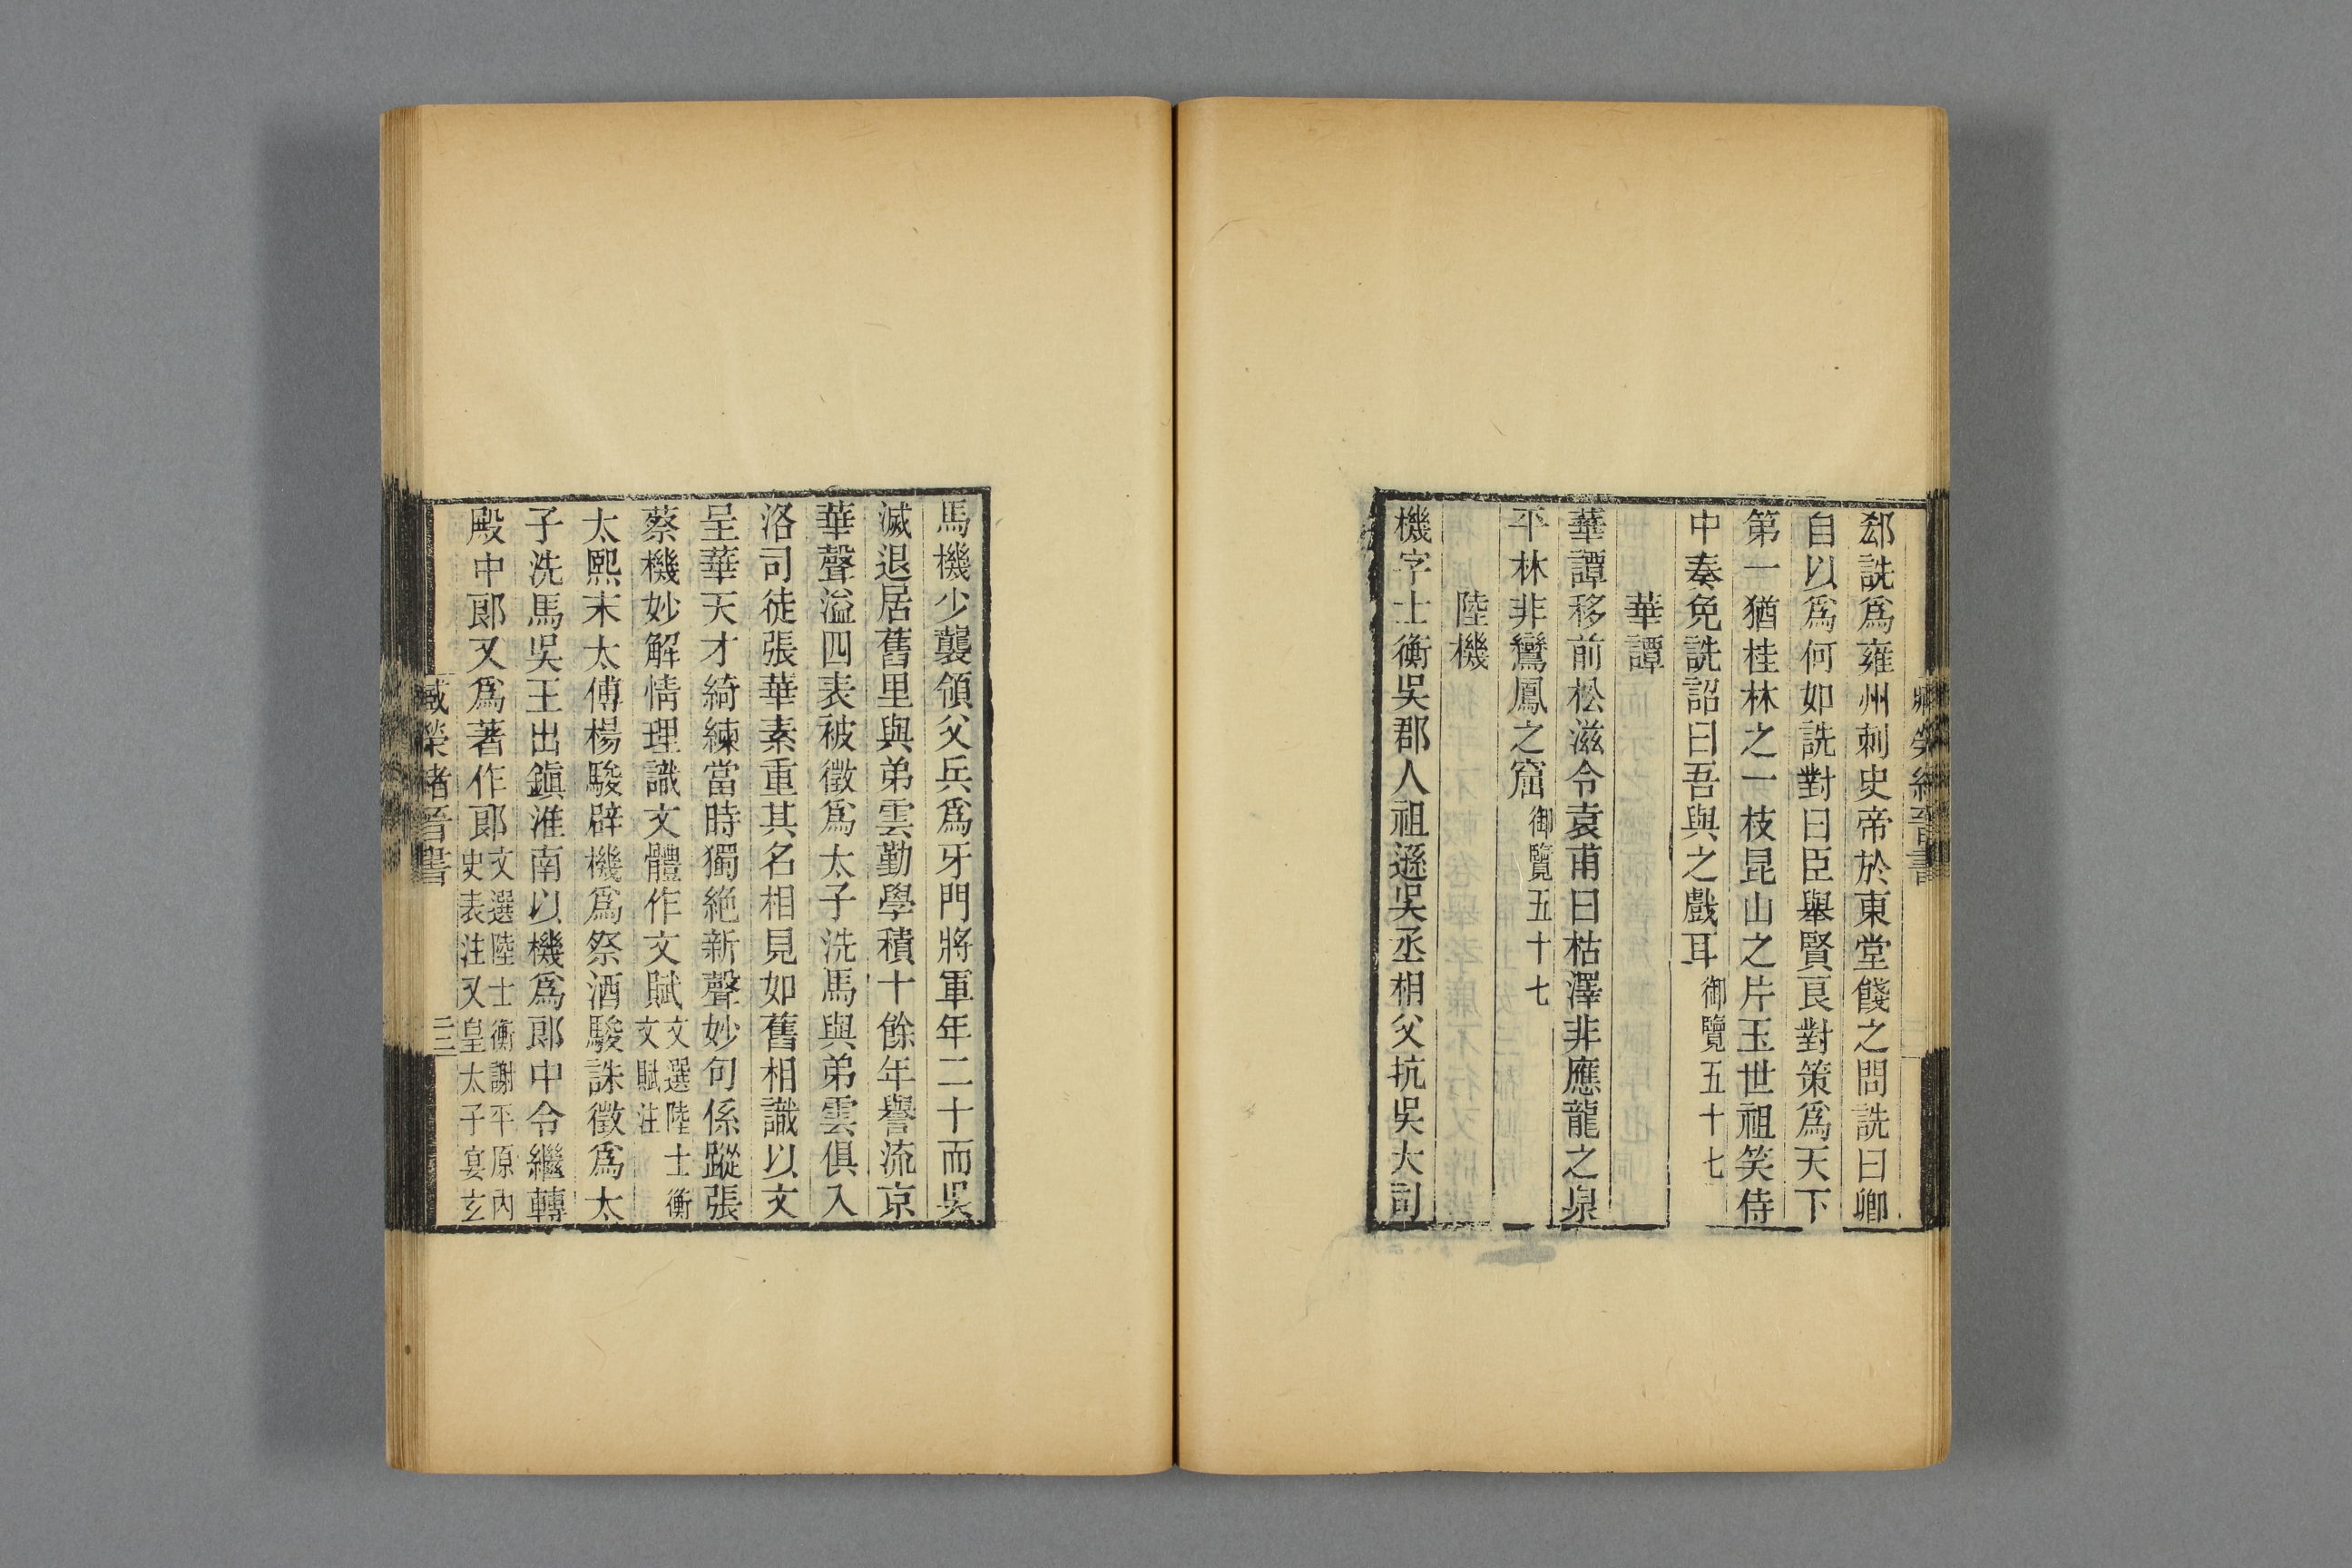 郄詵爲雍州刺史帝於東堂餞之問詵曰卿
自以爲何如詵對曰臣舉賢良對策爲天下
第一猶桂林之一枝昆山之片玉世祖笑侍
中奏免詵詔曰吾與之戲耳御覽五十七
華譚
華譚移前松滋令袁甫曰枯澤非應龍之泉
平林非鸞鳳之窟御覽五十七
陸機
機字士衡吳郡人祖遜吳丞相父抗吳大司
馬機少襲領父兵爲牙門將軍年二十而吳
滅退居舊里與弟雲勤學積十餘年譽流京
華聲溢四表被徵爲太子洗馬與弟雲俱入
洛司徒張華素重其名相見如舊相識以文
呈華天才綺練當時獨絶新聲妙句係蹤張
蔡機妙解情理識文體作文賦文選陸士衡文賦注
太熙末太傅楊駿辟機爲祭酒駿誅徵爲太
子洗馬吳王出鎭淮南以機爲郎中令繼轉
殿中郎又爲著作郎文選陸士衡謝平原內史表注又皇太子宴玄
臧榮緒晉書
三